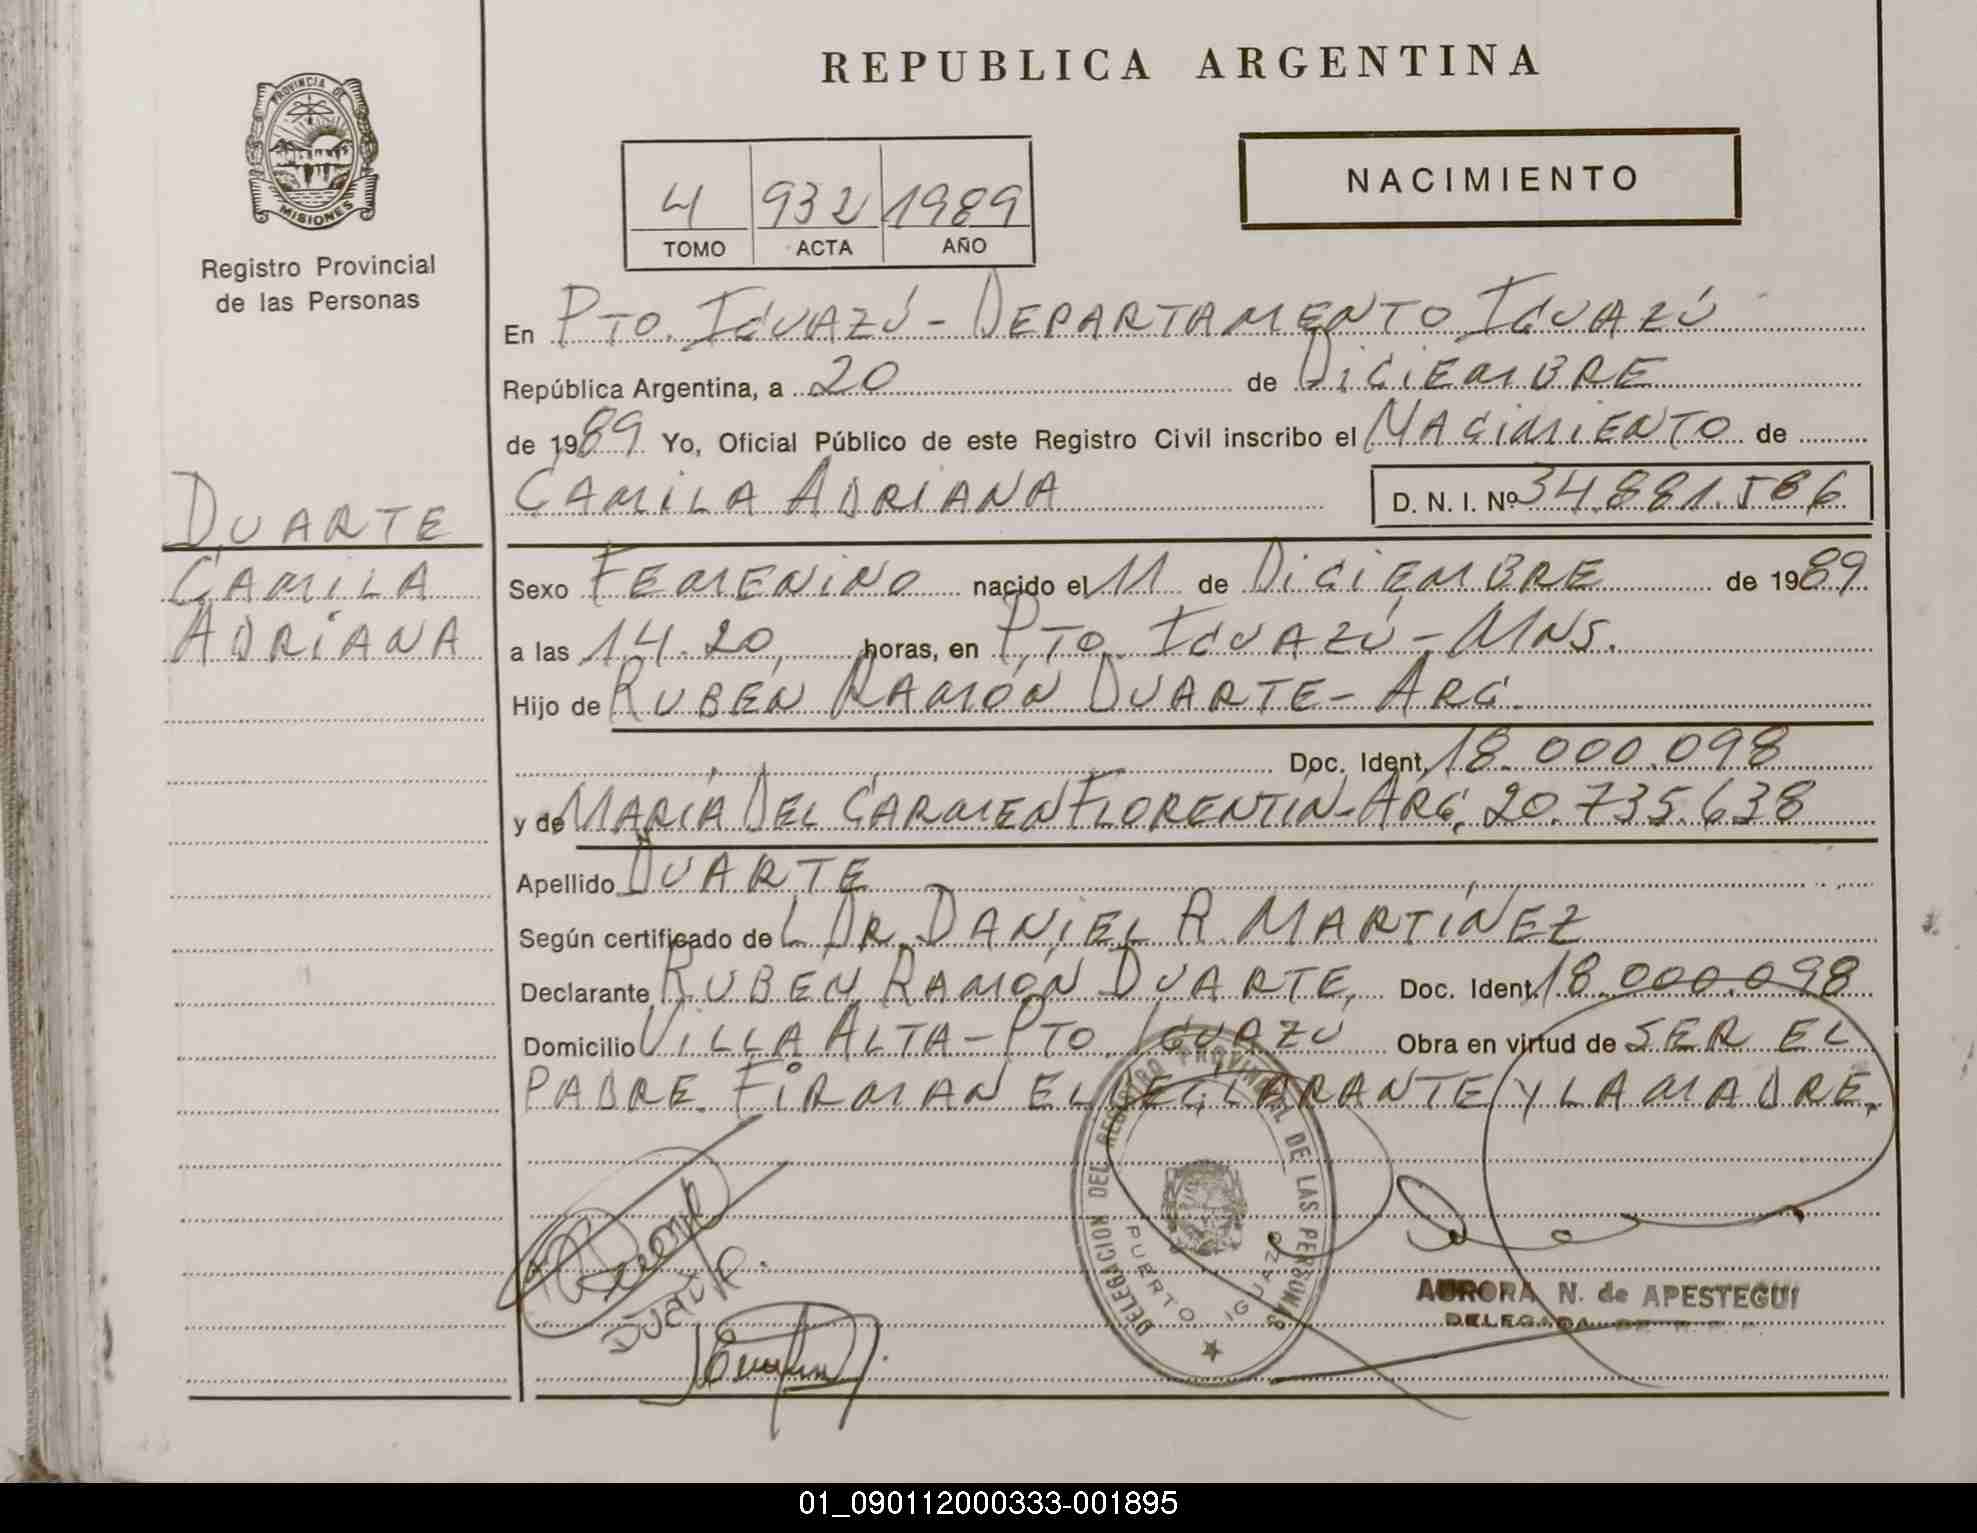 REPUBLICA ARGENTINA
PROVINCIA DE
MISIONES
Registro Provincial
de las Personas
4 932 1989
TOMO ACTA AÑO
NACIMIENTO
En PTO. IGUAZÚ - DEPARTAMENTO IGUAZÚ
República Argentina, a 20 de DICIEMBRE
de 1989 Yo, Oficial Público de este Registro Civil inscribo el NACIMIENTO de
CAMILA ADRIANA D. N. I. Nº 34.881.586
DUARTE
CAMILA
ADRIANA
Sexo FEMENINO nacido el 11 de DICIEMBRE de 1989
a las 14.20, horas, en PTO. IGUAZÚ - MNS.
Hijo de RUBÉN RAMÓN DUARTE - ARG.
Doc. Ident. 18.000.098
y de MARÍA DEL CARMEN FLORENTÍN - ARG. 20.735.638
Apellido DUARTE
Según certificado de L DR. DANIEL R. MARTÍNEZ
Declarante RUBÉN RAMÓN DUARTE, Doc. Ident. 18.000.098
Domicilio VILLA ALTA - PTO. IGUAZÚ Obra en virtud de SER EL
PADRE. FIRMAN EL DECLARANTE Y LA MADRE.
DELEGACION DEL REGISTRO PROVINCIAL DE LAS PERSONAS
PUERTO IGUAZU
Duarte
AURORA N. de APESTEGUI
DELEGADA
01_090112000333-001895